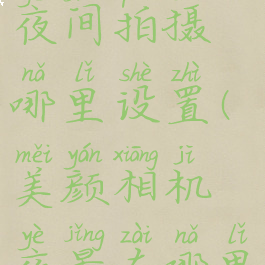 夜间拍摄
nǎ lǐ shè zhì
哪里设置(
měi yán xiāng jī
美颜相机
yè jǐng zài nǎ lǐ
夜景在哪里